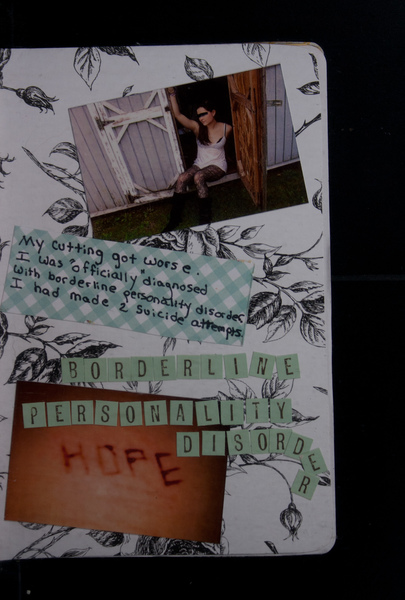 My cutting got worse.
I was "officially" diagnosed
with borderline personality disorder.
I had made 2 suicide attempts
BORDERLINE
PERSONALITY
DISORDER
HOPE